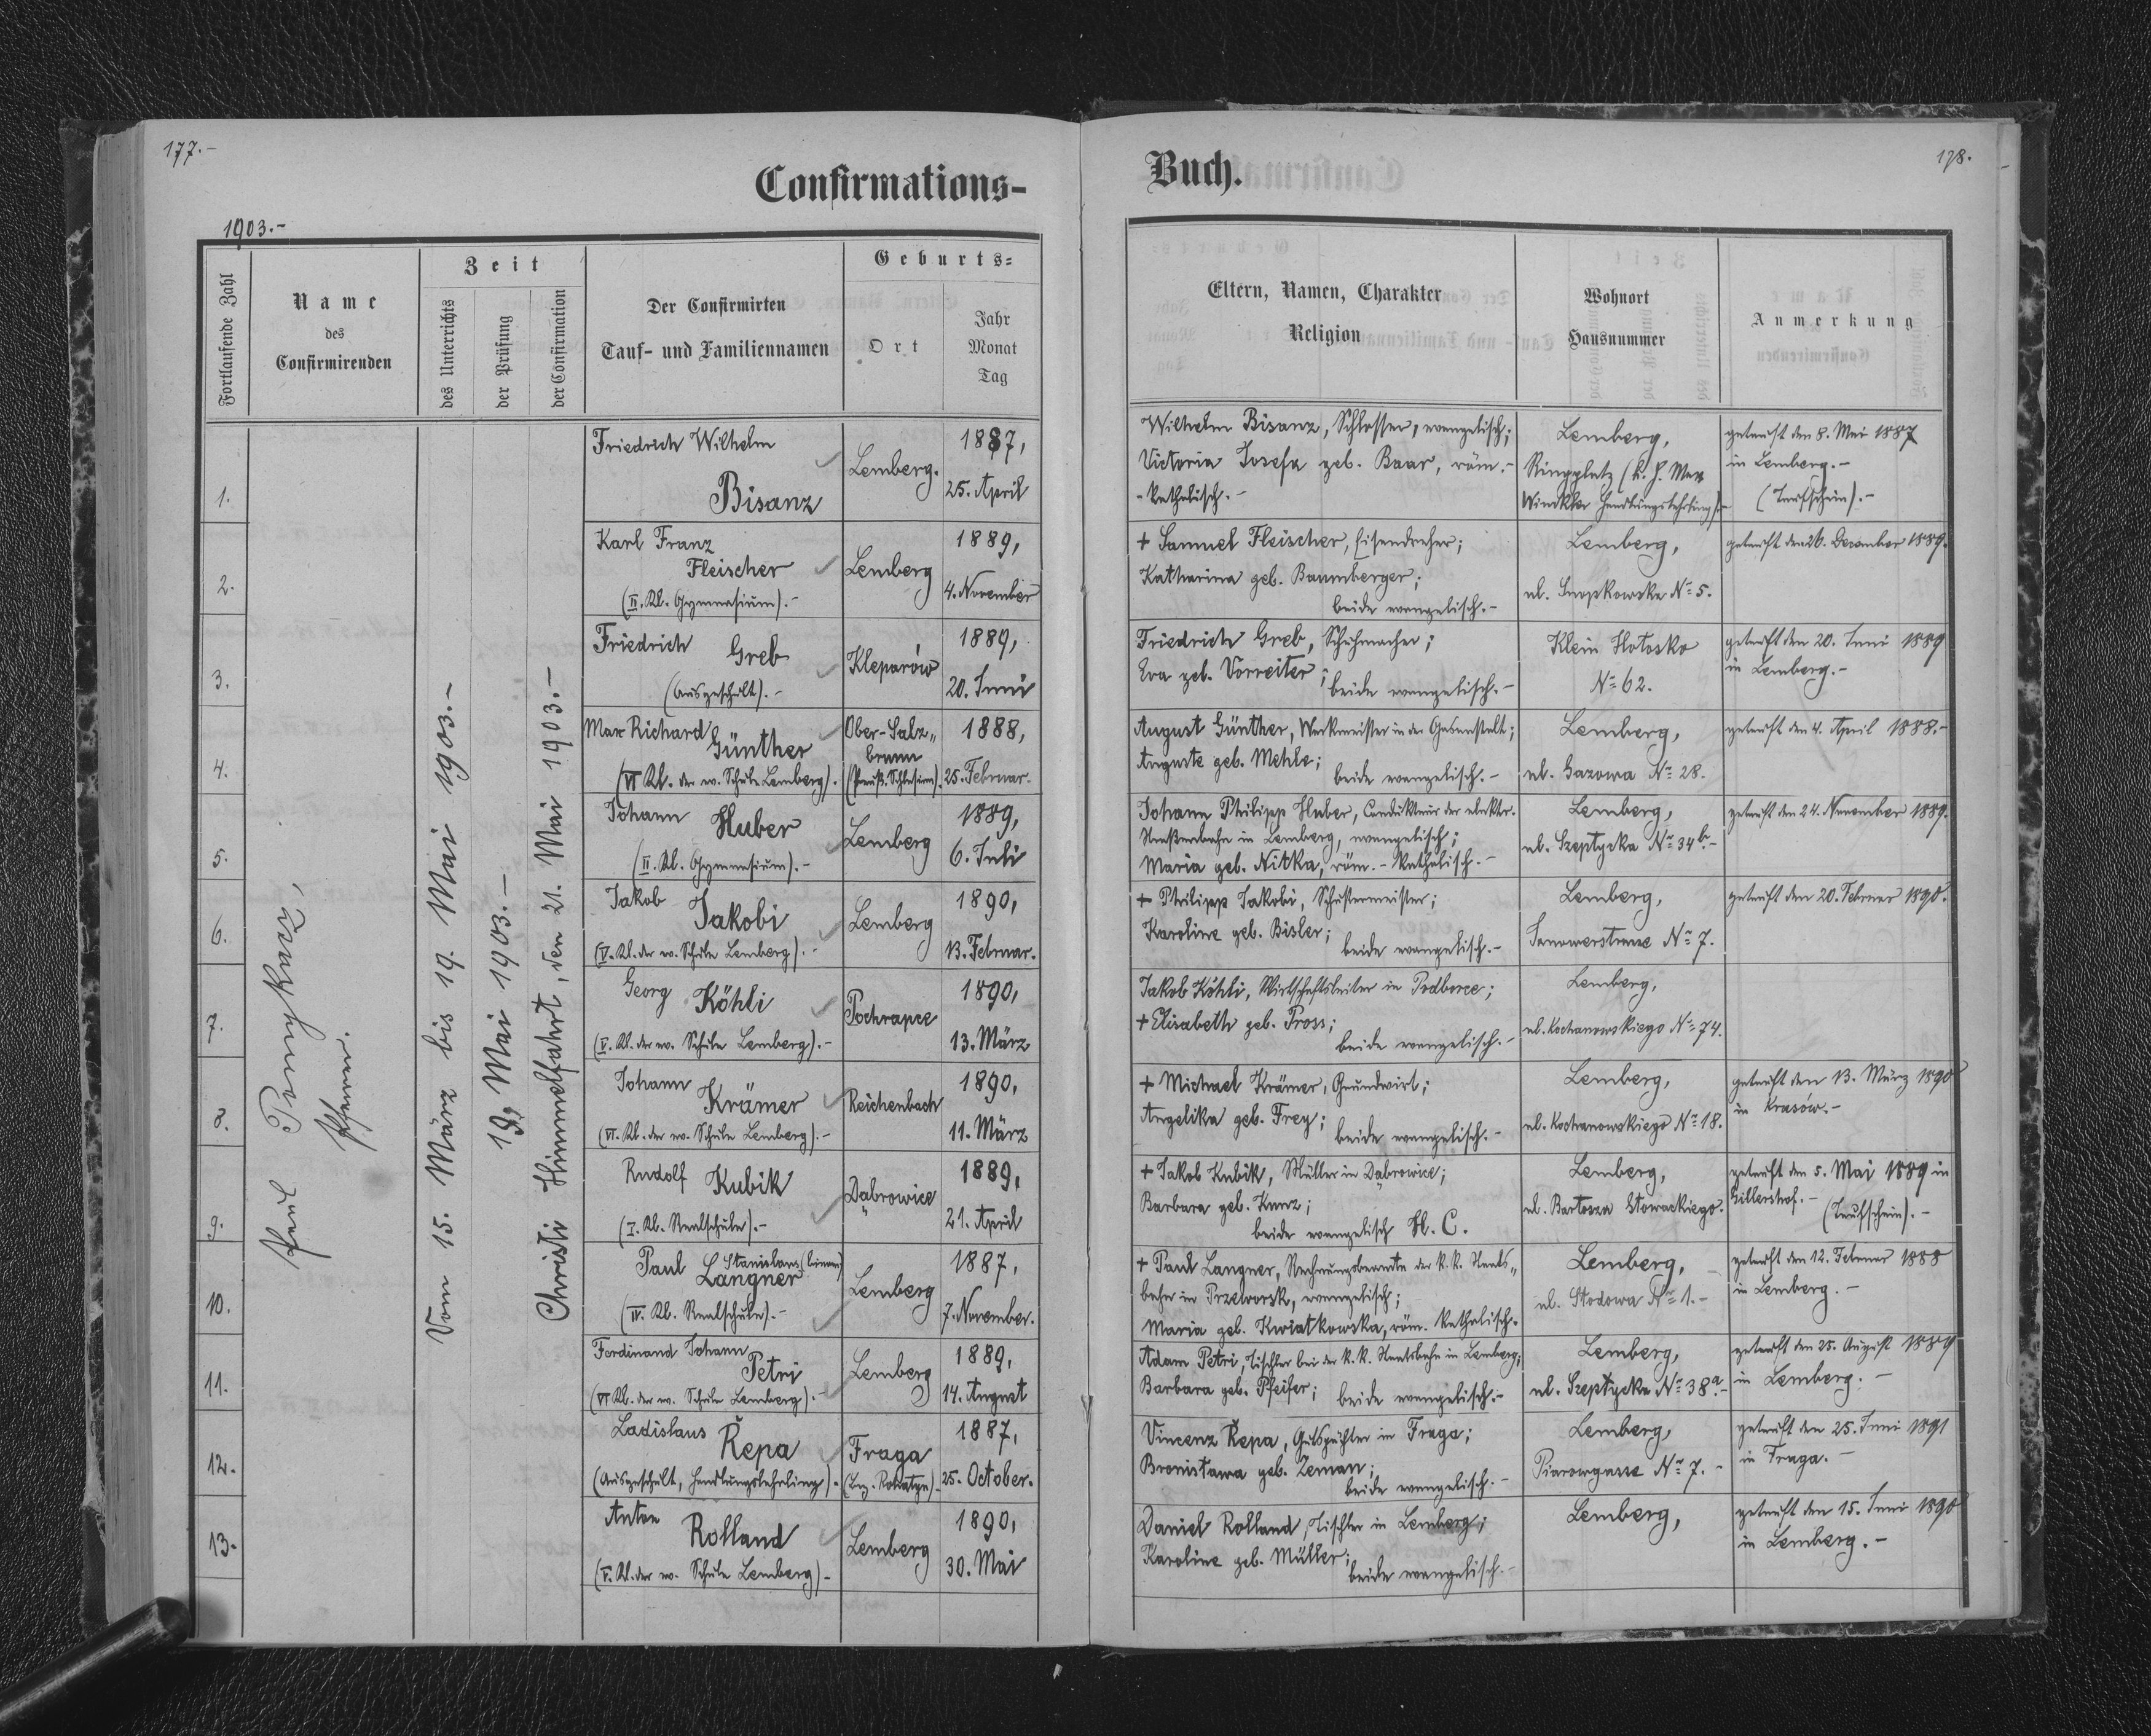 177.-
Confirmations-
1903.-
Fortlaufende Zahl
Name
des
Confirmirenden
Zeit
des Unterrichts
der Prüfung
der Confirmation
Der Confirmirten
Tauf- und Familiennamen
Geburts-
Ort
Jahr
Monat
Tag
Pfarrer.
Vom 15. März bis 19. Mai 1903.-
19. Mai 1903.-
Christi Himmelfahrt, den 21. Mai 1903.-
1.
Friedrich Wilhelm
Bisanz
Lemberg.
1887,
25. April
2.
Karl Franz
Fleischer
(II. Kl. Gymnasium).-
Lemberg
1889,
4. November
3.
Friedrich
Greb
(Ausgeschult).-
Kleparów
1889,
20. Juni
4.
Max Richard
Günther
(VI Kl. der ev. Schule Lemberg).
Ober-Salz„
brunn
(Preuß. Schlesien).
1888,
25. Februar.
5.
Johann
Huber
(II. Kl. Gymnasium).-
Lemberg
1889,
6. Juli
6.
Jakob
Jakobi
(V. Kl. der ev. Schule Lemberg).-
Lemberg
1890,
13. Februar.
7.
Georg
Köhli
(V. Kl. der ev. Schule Lemberg).-
Pochrapce
1890,
13. März
8.
Johann
Krämer
(VI. Kl. der ev. Schule Lemberg).-
Reichenbach
1890,
11. März
9.
Rudolf
Kubik
(I. Kl. Realschule).-
Dąbrowice
1889,
21. April
10.
Paul Stanislaus
Langner
(IV. Kl. Realschule).-
Lemberg
1887,
7. November.
11.
Ferdinand Johann
Petri
(VI Kl. der ev. Schule Lemberg).-
Lemberg
1889,
14. August
12.
Ladislaus
Řepa
(Ausgeschult, Handlungslehrling).-
Fraga
(Bez. Rohatyn).
1887,
25. October.
13.
Anton
Rolland
(V. Kl. der ev. Schule Lemberg)-
Lemberg
1890,
30. Mai
178.
Buch.
Eltern, Namen, Charakter
Religion
Wohnort
Hausnummer
Anmerkung
Wilhelm Bisanz, Schlosser, evangelisch;
Victoria Josefa geb. Baar, röm.-
-katholisch.-
Lemberg,
Ringplatz
Handlungslehrling).-
getauft den 8. Mai 1887
in Lemberg.-
(Taufschein).-
+ Samuel Fleischer, Eisendreher;
Katharina geb. Baumberger;
beide evangelisch.-
Lemberg,
ul. Snopkowska No 5.
getauft den 26. December 1889.
Friedrich Greb, Schuhmacher;
Eva geb. Vorreiter;
beide evangelisch.-
Klein Hołosko
No 62.
getauft den 20. Juni 1889
in Lemberg.-
August Günther, Werkmeister in der Gasanstalt;
Auguste geb. Mehle;
beide evangelisch.-
Lemberg,
ul. Gazowa No 28.
getauft den 4. April 1888.-
Johann Philipp Huber, Condukteur der elektr.
Straßenbahn in Lemberg, evangelisch;
Maria geb. Nitka, röm.-katholisch.-
Lemberg,
ul. Szeptycka No 34b.-
getauft den 24. November 1889.
+ Philipp Jakobi, Schustermeister;
Karoline geb. Bisler;
beide evangelisch.-
Lemberg,
Janowerstrasse No 7.
getauft den 20. Februar 1890.
Jakob Köhli, Wirtschaftsleiter in Podborce;
+ Elisabeth geb. Pross;
beide evangelisch.-
Lemberg,
ul. Kochanowskiego No 74.
+ Michael Krämer, Grundwirt;
Angelika geb. Frey;
beide evangelisch.-
Lemberg,
ul. Kochanowskiego No 18.
getauft den 13. März 1890
in Krasów.-
+ Jakob Kubik, Müller in Dąbrowice;
Barbara geb. Kunz;
beide evangelisch H. C.
Lemberg,
ul. Bartosza Głowackiego.
getauft den 5. Mai 1889 in
Gillershof.-
(Taufschein).-
+ Paul Langner, Rechnungsbeamte der k. k. Staats„
bahn in Przeworsk, evangelisch;
Maria geb. Kwiatkowska, röm. katholisch.
Lemberg,
ul. Słodowa No 1.-
getauft den 12. Februar 1888
in Lemberg.-
Adam Petri, Tischler bei der k. k. Staatsbahn in Lemberg;
Barbara geb. Pfeifer; beide evangelisch.-
Lemberg,
ul. Szeptycka No 38a.-
getauft den 25. August 1889
in Lemberg.-
Vincenz Řepa, Gutspächter in Fraga;
Bronisława geb. Zeman;
beide evangelisch.-
Lemberg,
Piarowgasse No 7.-
getauft den 25. Juni 1891
in Fraga.-
Daniel Rolland, Tischler in Lemberg;
Karoline geb. Müller;
beide evangelisch.-
Lemberg,
getauft den 15. Juni 1890
in Lemberg.-